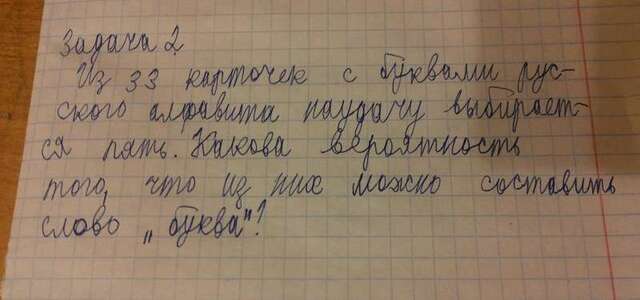 Задача 2.
Из 33 карточек с буквами рус-
ского алфавита наудачу выбирает-
ся пять. Какова вероятность
того, что из них можно составить
слово „буква"?